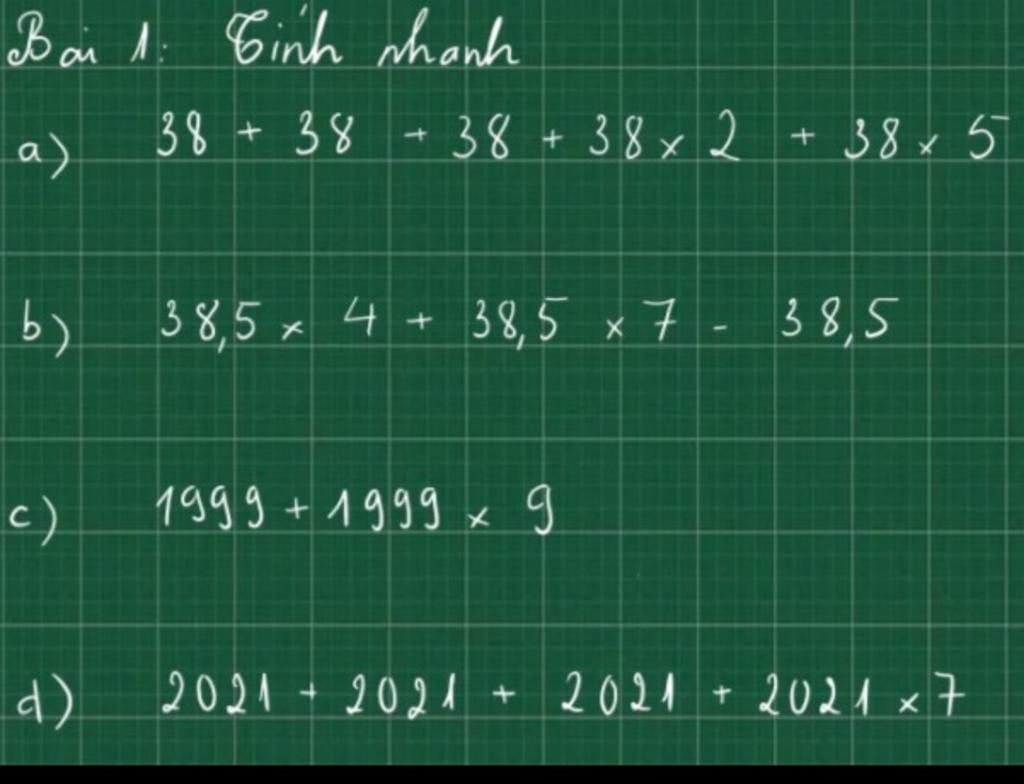 Bài 1: Tính nhanh
a) 38 + 38 + 38 + 38 × 2 + 38 × 5
b) 38,5 × 4 + 38,5 × 7 - 38,5
c) 1999 + 1999 × 9
d) 2021 + 2021 + 2021 + 2021 × 7